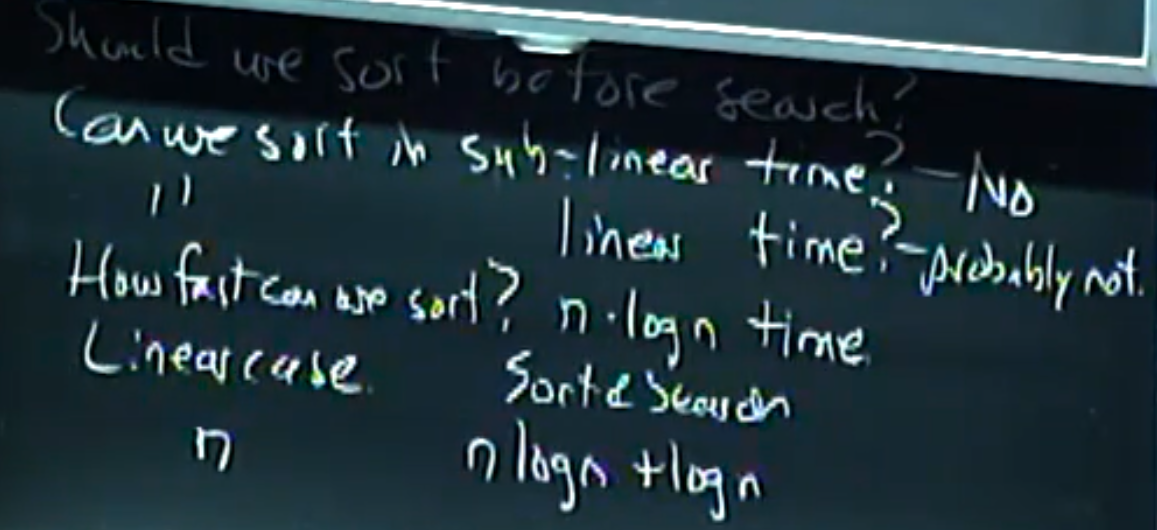 Should we sort before search?
Can we sort in sub-linear time? - No
" linear time? - probably not.
How fast can we sort? n·log n time.
Linear case. Sort & Search
n n log n + log n